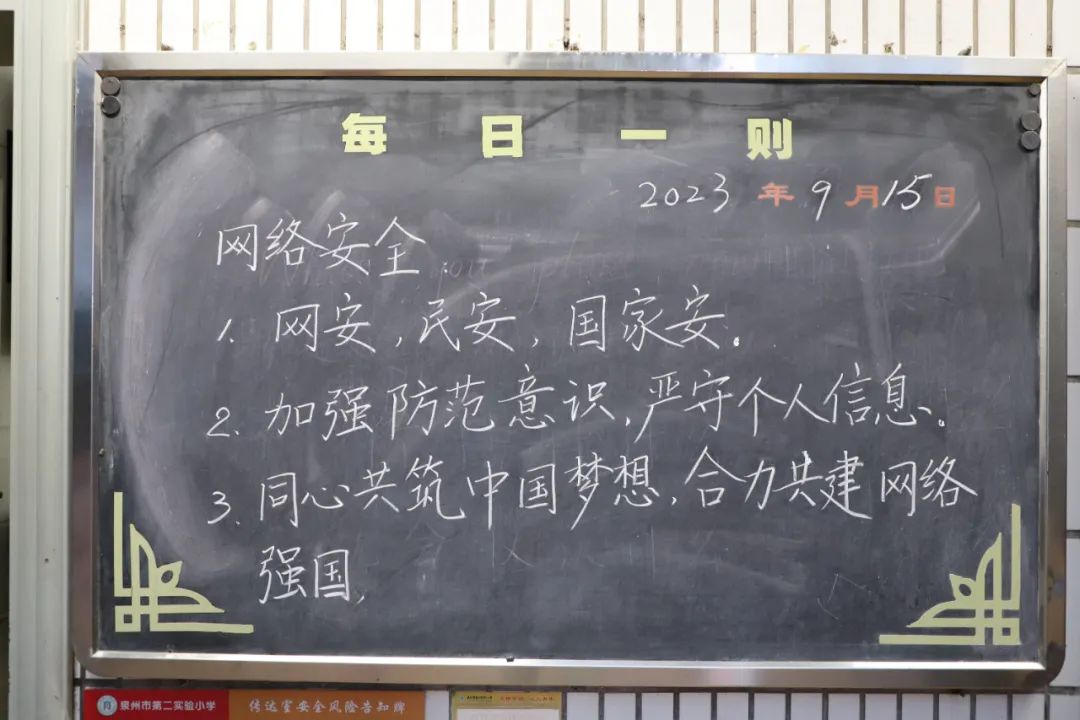 每日一则
2023年9月15日
网络安全
1. 网安,民安,国家安。
2. 加强防范意识,严守个人信息。
3. 同心共筑中国梦想,合力共建网络
强国,
泉州市第二实验小学
传达室安全风险告知牌